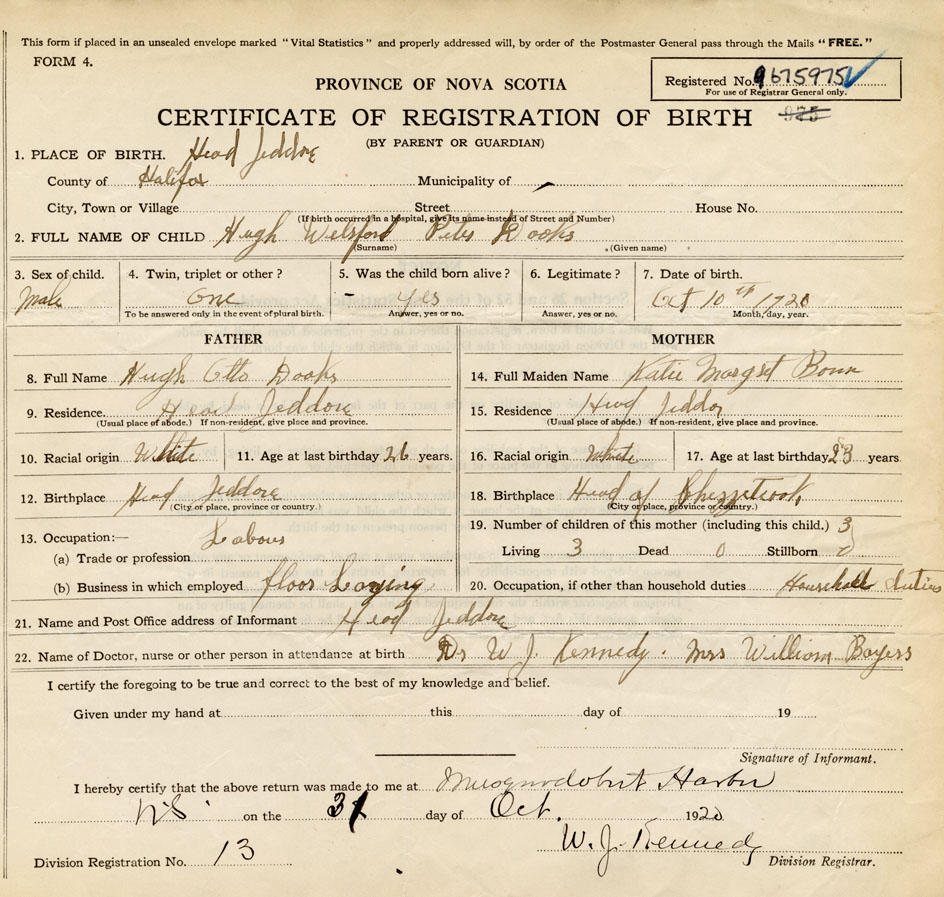 This form if placed in an unsealed envelope marked "Vital Statistics" and properly addressed will, by order of the Postmaster General pass through the Mails "FREE."
FORM 4.
Registered No. 9675975
For use of Registrar General only.
PROVINCE OF NOVA SCOTIA
CERTIFICATE OF REGISTRATION OF BIRTH 975
(BY PARENT OR GUARDIAN)
1. PLACE OF BIRTH. Head Jeddore
County of Halifax Municipality of
City, Town or Village Street House No.
(If birth occurred in a hospital, give its name instead of Street and Number)
2. FULL NAME OF CHILD Hugh Welsford Dooks
(Surname) (Given name)
3. Sex of child. 4. Twin, triplet or other? 5. Was the child born alive? 6. Legitimate? 7. Date of birth.
Male One - yes Oct 10th 1920
To be answered only in the event of plural birth. Answer, yes or no. Answer, yes or no. Month, day, year.
FATHER MOTHER
8. Full Name Hugh Otto Dooks
9. Residence. Head Jeddore
(Usual place of abode.) If non-resident, give place and province.
10. Racial origin White 11. Age at last birthday 26 years.
12. Birthplace Head Jeddore
(City or place, province or country.)
13. Occupation:— Labour
(a) Trade or profession
(b) Business in which employed floor Laying
14. Full Maiden Name Katie Margret Bonn
15. Residence Head Jeddor
(Usual place of abode.) If non-resident, give place and province.
16. Racial origin White 17. Age at last birthday 23 years
18. Birthplace Head of Chezzetcook
(City or place, province or country.)
19. Number of children of this mother (including this child.) 3
Living 3 Dead 0 Stillborn 0
20. Occupation, if other than household duties Household duties
21. Name and Post Office address of Informant Head Jeddore
22. Name of Doctor, nurse or other person in attendance at birth Dr W J. Kennedy. Mrs William Bayers
I certify the foregoing to be true and correct to the best of my knowledge and belief.
Given under my hand at this day of 19
Signature of Informant.
I hereby certify that the above return was made to me at Musquodobit Harbor
NS on the 31 day of Oct. 1920
W. J. Kennedy
Division Registration No. 13 Division Registrar.